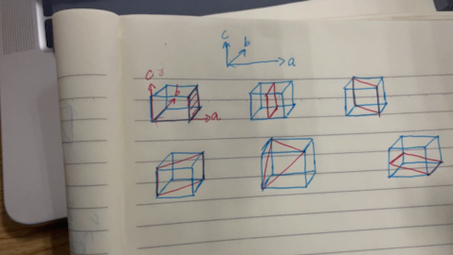 c
b
a
c
b
a